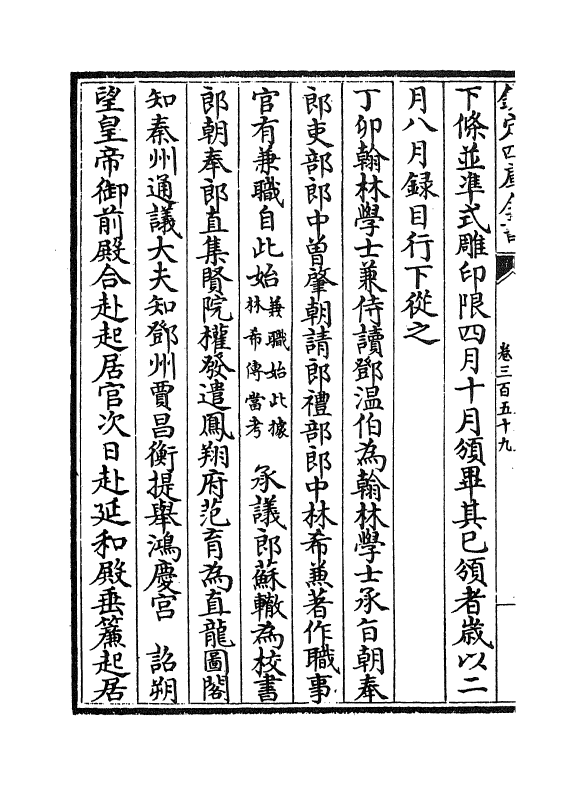 欽定四庫全書
卷三百五十九
下條並準式雕印限四月十月頒畢其已頒者歳以二
月八月録目行下從之
丁卯翰林學士兼侍讀鄧温伯為翰林學士承㫖朝奉
郎吏部郎中曾肇朝請郎禮部郎中林希兼著作職事
官有兼職自此始兼職始此據林希傳當考　承議郎蘇轍為校書
郎朝奉郎直集賢院權發遣鳳翔府范育為直龍圖閣
知秦州通議大夫知鄧州賈昌衡提舉鴻慶宮　詔朔
望皇帝御前殿合赴起居官次日赴延和殿垂簾起居